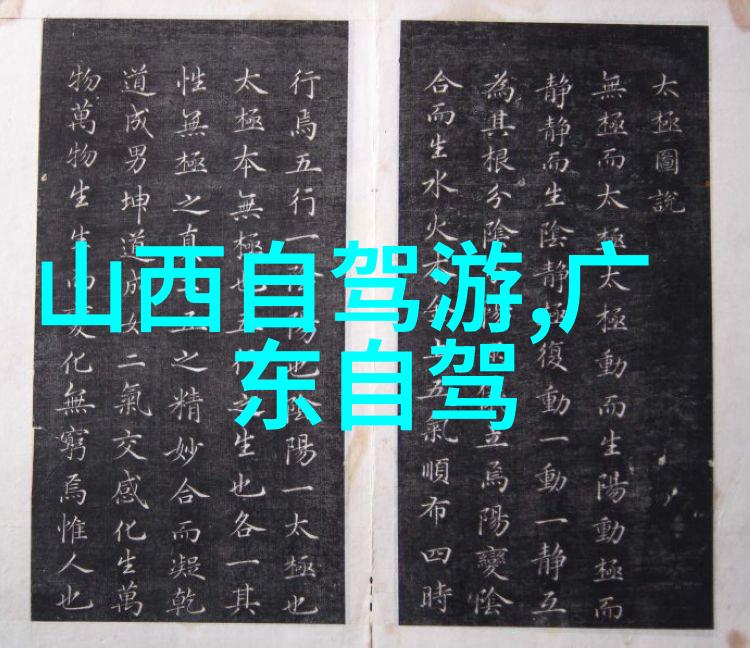 山西自驾游,广
东自驾
太極圖說
無極而太極太極動而生陽動極而
静静而生陰静極復動一動一静互
為其根分陰陽立焉陽變陰
合而生水火木五氣順布四時
行焉五行一陰陽也陰陽一太極也
太極本無極也之生也各一其
性無極之真五之精妙合而凝乾
道成男坤道成女二氣交感化生萬
物萬物生生而變化無窮焉惟人也